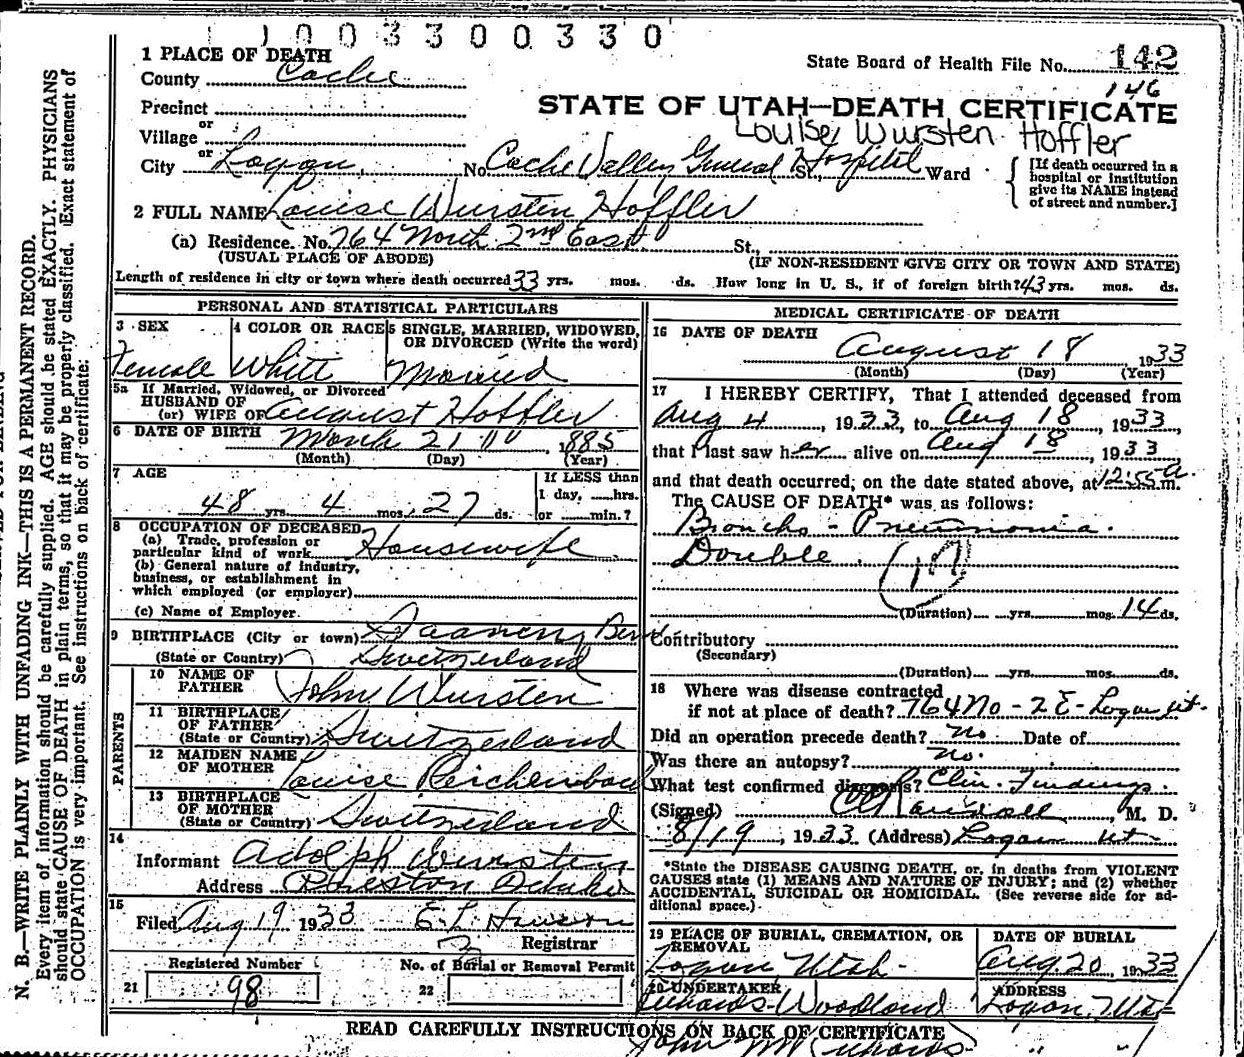 1003300330
1 PLACE OF DEATH
State Board of Health File No. 142
County Cache
146
Precinct
STATE OF UTAH—DEATH CERTIFICATE
or
Village
Louise Wursten Hoffler
or
City Logan, No. Cache Valley General Hospital St., Ward
[If death occurred in a
hospital or institution
give its NAME instead
of street and number.]
2 FULL NAME Louise Wursten Hoffler
(a) Residence. No. 764 North 2nd East St.,
(USUAL PLACE OF ABODE) (IF NON-RESIDENT GIVE CITY OR TOWN AND STATE)
Length of residence in city or town where death occurred 33 yrs. mos. ds. How long in U. S., if of foreign birth? 43 yrs. mos. ds.
PERSONAL AND STATISTICAL PARTICULARS
3 SEX 4 COLOR OR RACE 5 SINGLE, MARRIED, WIDOWED,
OR DIVORCED (Write the word)
Female White Married
5a If Married, Widowed, or Divorced
HUSBAND OF
(or) WIFE OF August Hoffler
6 DATE OF BIRTH March 21 1885
(Month) (Day) (Year)
7 AGE If LESS than
1 day, hrs.
48 yrs. 4 mos. 27 ds. or min.?
8 OCCUPATION OF DECEASED
(a) Trade, profession or
particular kind of work Housewife
(b) General nature of industry,
business, or establishment in
which employed (or employer)
(c) Name of Employer.
9 BIRTHPLACE (City or town) Saanen, Bern
(State or Country) Switzerland
PARENTS
10 NAME OF
FATHER John Wursten
11 BIRTHPLACE
OF FATHER
(State or Country) Switzerland
12 MAIDEN NAME
OF MOTHER Louise Reichenbach
13 BIRTHPLACE
OF MOTHER
(State or Country) Switzerland
14
Informant Adolph Wursten
Address Preston Idaho
15
Filed Aug 19 1933 E. L.
Registrar
Registered Number No. of Burial or Removal Permit
21 98 22
MEDICAL CERTIFICATE OF DEATH
16 DATE OF DEATH
August 18 1933
(Month) (Day) (Year)
17 I HEREBY CERTIFY, That I attended deceased from
Aug 4, 1933, to Aug 18, 1933,
that I last saw her alive on Aug 18, 1933
and that death occurred, on the date stated above, at 12:55 a. m.
The CAUSE OF DEATH* was as follows:
Broncho-Pneumonia.
Double.
(Duration) yrs. mos. 14 ds.
Contributory
(Secondary)
(Duration) yrs. mos. ds.
18 Where was disease contracted
if not at place of death? 764 No - 2 E - Logan Ut.
Did an operation precede death? no Date of
Was there an autopsy? no.
What test confirmed diagnosis? Clin. Findings.
(Signed) , M. D.
8/19, 1933 (Address) Logan Ut
*State the DISEASE CAUSING DEATH, or, in deaths from VIOLENT
CAUSES state (1) MEANS AND NATURE OF INJURY; and (2) whether
ACCIDENTAL, SUICIDAL OR HOMICIDAL. (See reverse side for ad-
ditional space.)
19 PLACE OF BURIAL, CREMATION, OR
REMOVAL
DATE OF BURIAL
Logan Utah Aug. 20, 1933
20 UNDERTAKER ADDRESS
Woodland Logan Utah
READ CAREFULLY INSTRUCTIONS ON BACK OF CERTIFICATE
John M
N. B.—WRITE PLAINLY WITH UNFADING INK—THIS IS A PERMANENT RECORD.
Every item of information should be carefully supplied. AGE should be stated EXACTLY. PHYSICIANS
should state CAUSE OF DEATH in plain terms, so that it may be properly classified. Exact statement of
OCCUPATION is very important. See instructions on back of certificate: